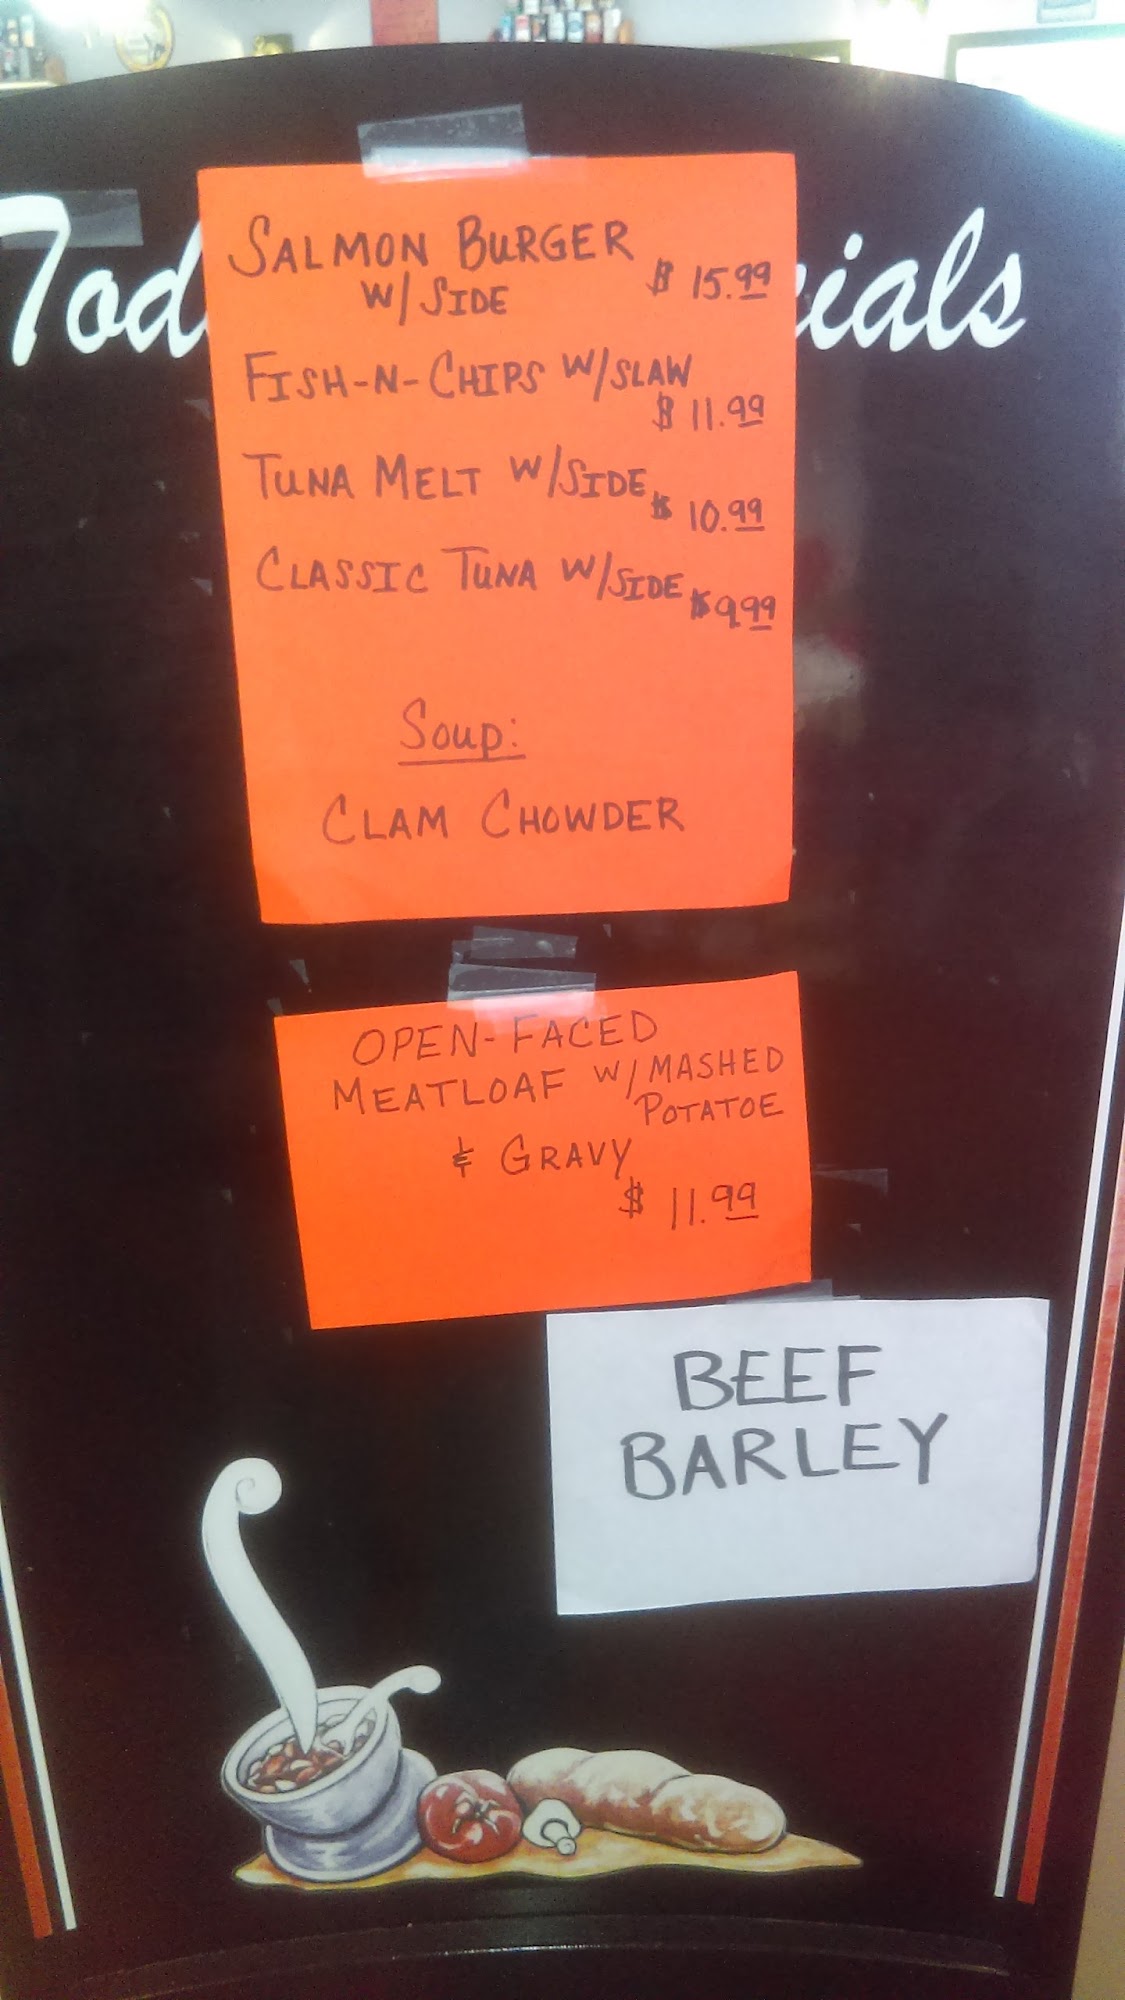 Tod
cials
SALMON BURGER
W/ SIDE $ 15.99
FISH-N-CHIPS W/SLAW
$ 11.99
TUNA MELT W/SIDE
$ 10.99
CLASSIC TUNA W/SIDE
$9.99
Soup:
CLAM CHOWDER
OPEN-FACED
MEATLOAF W/MASHED
POTATOE
& GRAVY
$ 11.99
BEEF
BARLEY